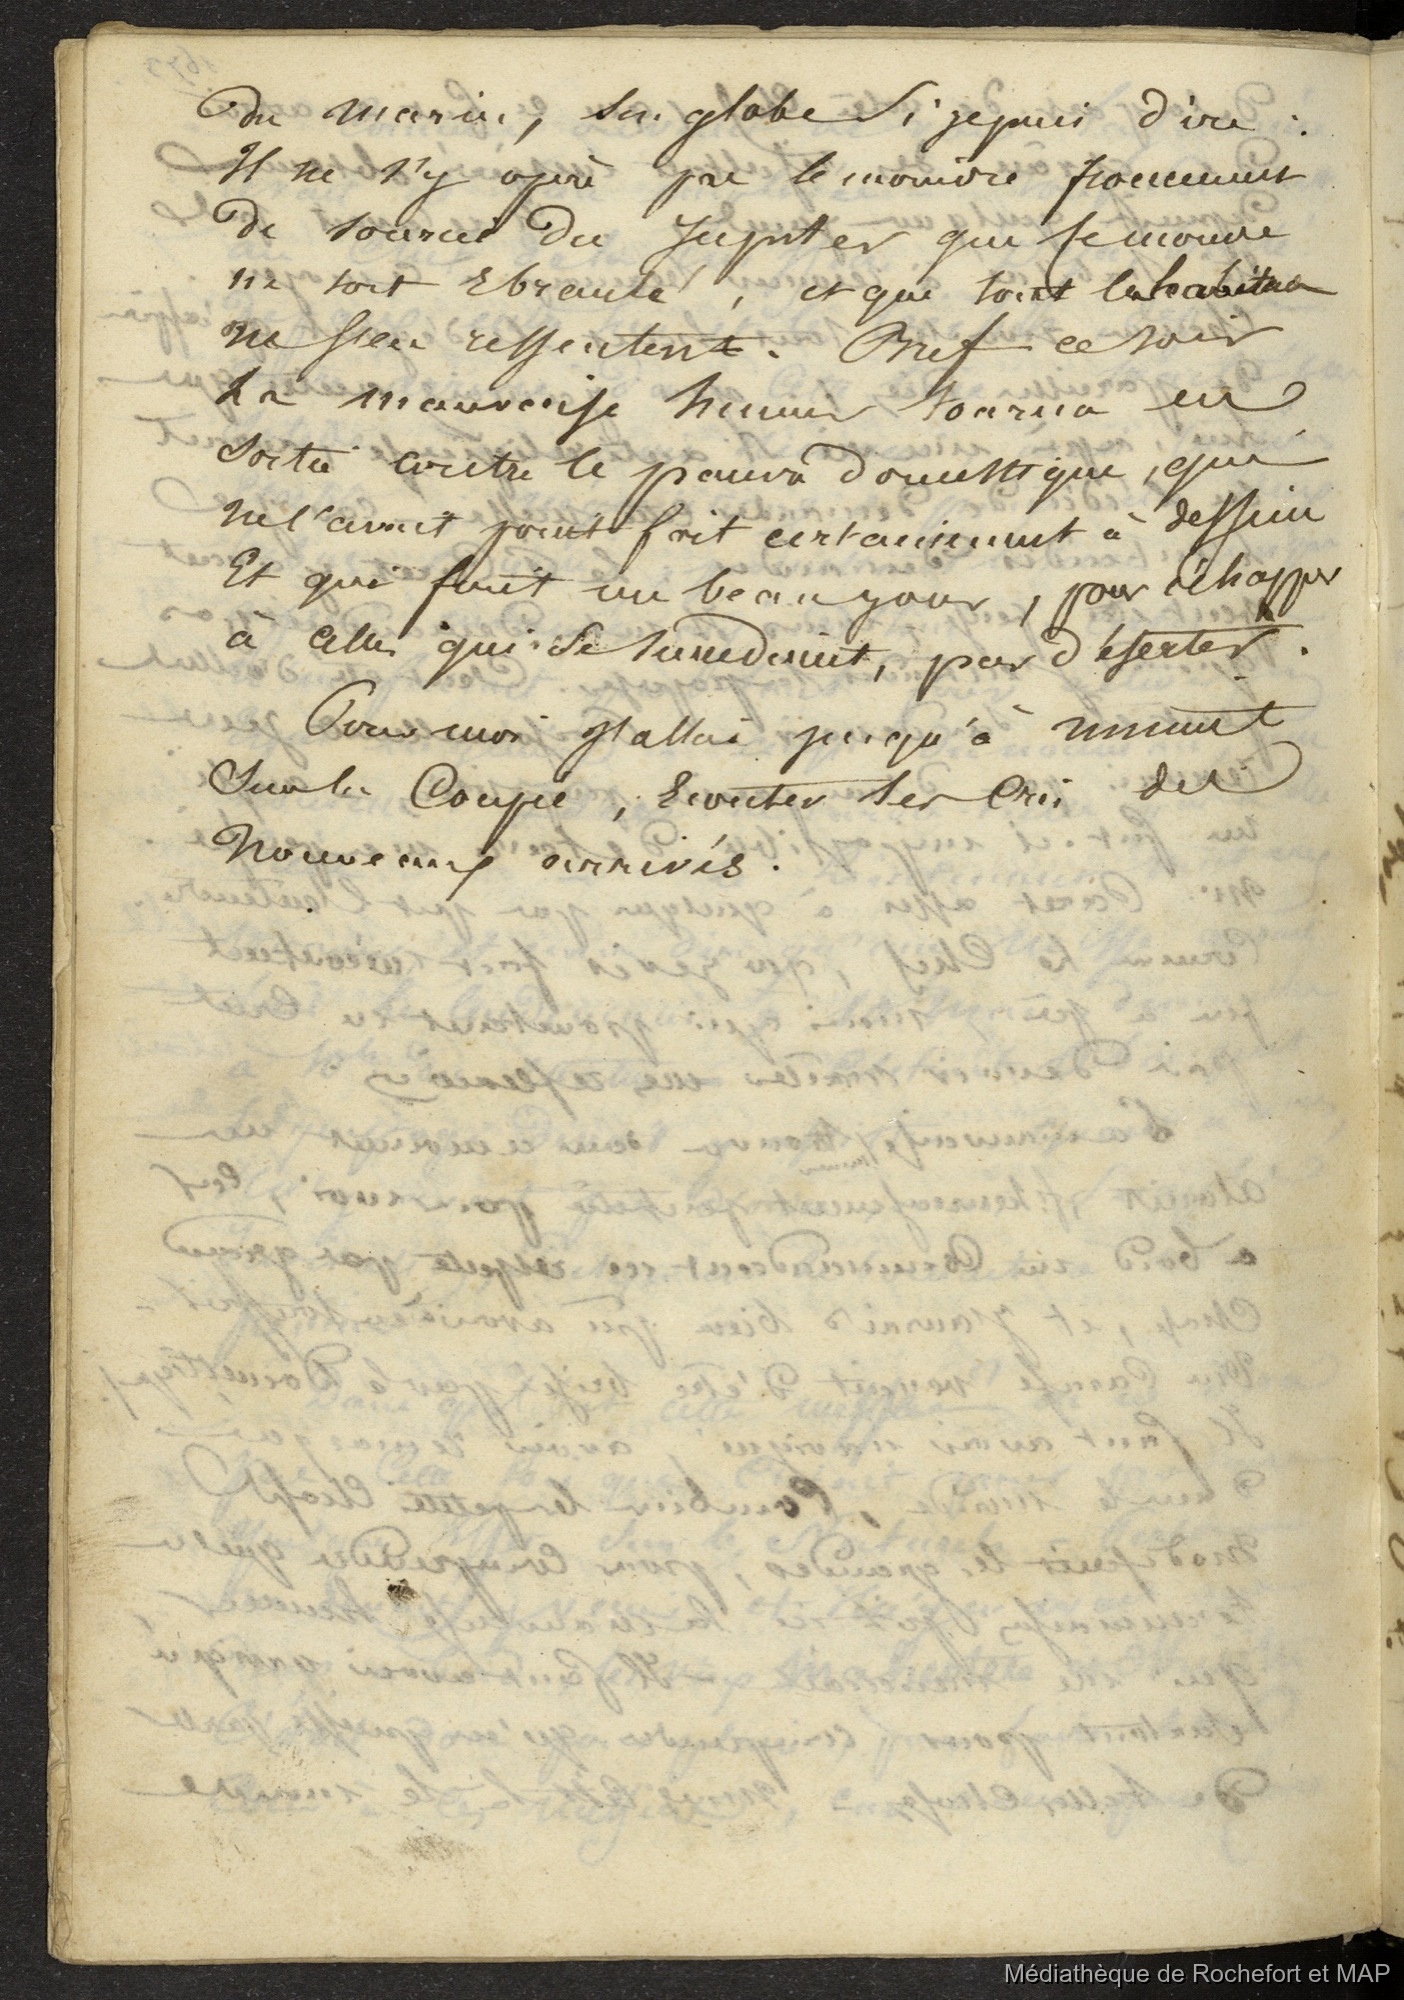 du marin, son globe si je puis dire :
Il ne s'y opère pas le moindre froncement
de sourcis du Jupiter que le monde
ne soit ébranlé, et que tout les habitan
ne s'en ressentent. Bref ce soir
La mauvaise humeur tourna en
sortie contre le pauvre domestique, qui
ne l'avait point fait certainement à dessein
Et qui finit un beau jour, pour échapper
à celles qui se succedaient, par déserter.
Pour moi j'allai jusqu'à minuit
Sur la Coupée, Ecouter les Cris des
Nouveaux arrivés.
Médiathèque de Rochefort et MAP